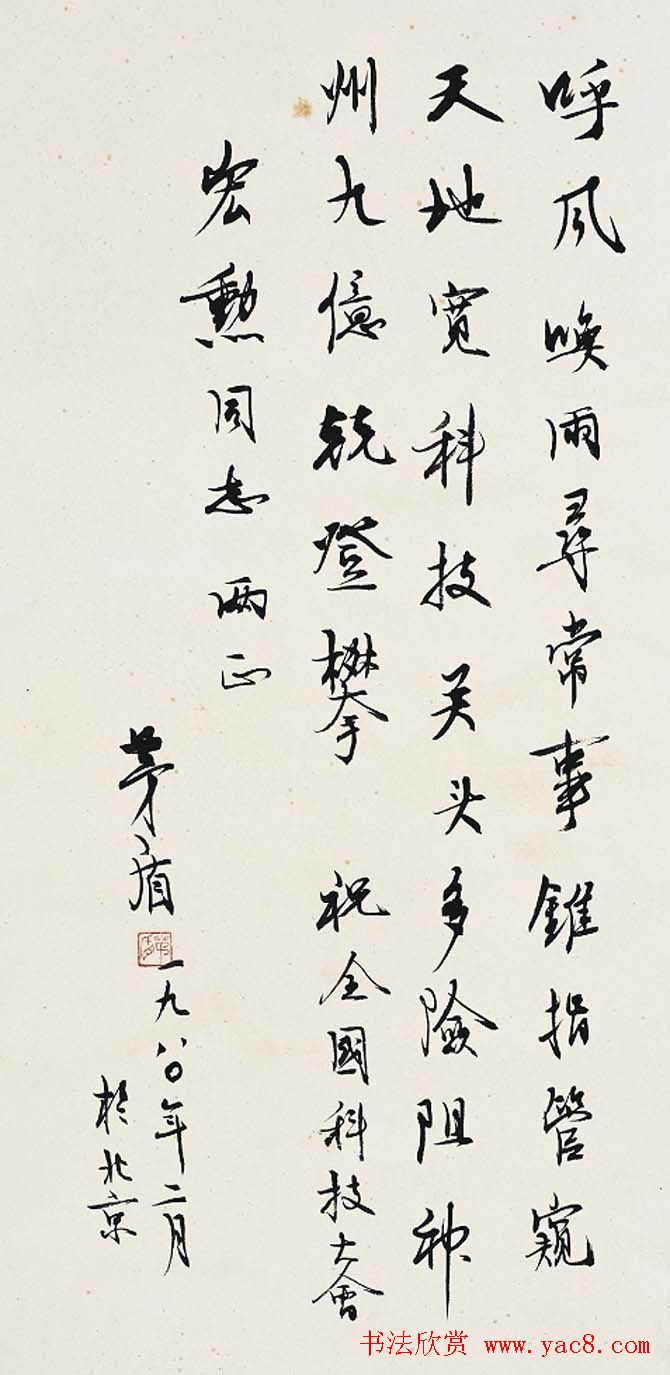 呼风唤雨尋常事錐指管窺
天地宽科技关头多險阻神
州九億競登攀 祝全國科技大會
宏勳同志两正
茅盾
一九八〇年二月
於北京
书法欣赏 www.yac8.com